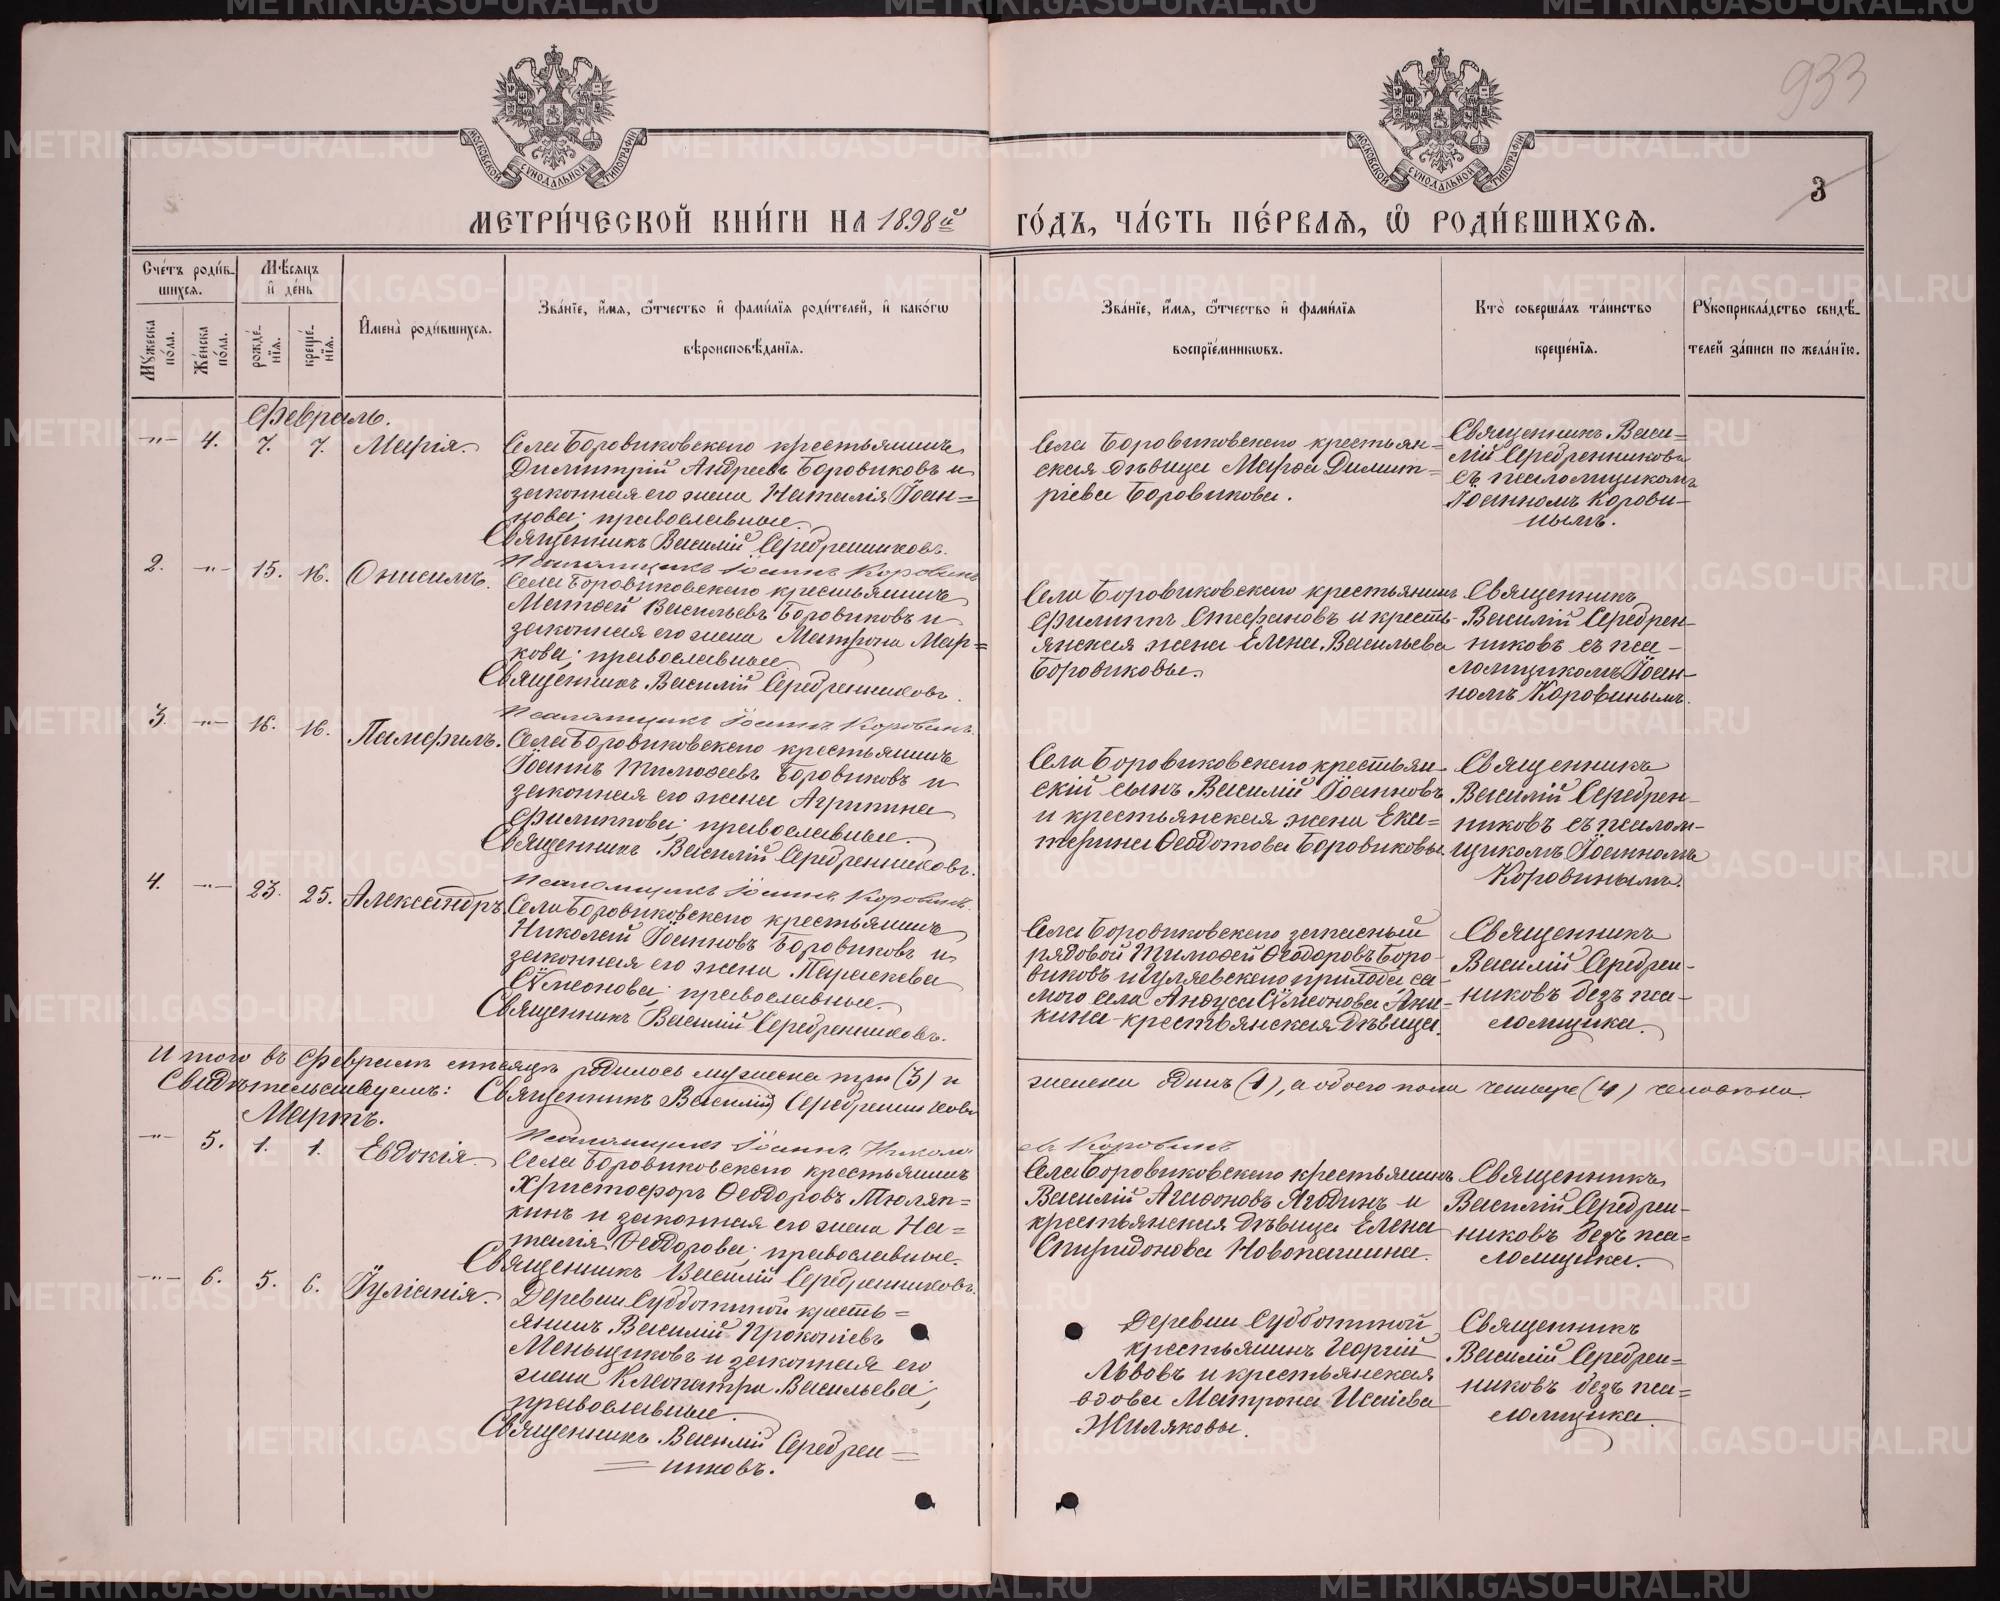 933
МОСКОВСКОЙ СѴНОДАЛЬНОЙ ТИПОГРАФІИ
МОСКОВСКОЙ СѴНОДАЛЬНОЙ ТИПОГРАФІИ
3
МЕТРИ́ЧЕСКОЙ КНИ́ГИ НА 1898й ГО́ДЪ, ЧА́СТЬ ПЕ́РВАЯ, Ѡ҆ РОДИ́ВШИХСЯ.
Сче́тъ роди́в-
шихся.
Мꙋжеска по́ла.
Же́нска по́ла.
Мѣ́сяцъ
и҆ де́нь
рожде́нїя.
креще́нїя.
И҆мена̀ роди́вшихся.
Зва́нїе, и҆́мя, ѻ҆́тчество и҆ фами́лїя роди́телей, и҆ како́гѡ
вѣроисповѣ́данїя.
Зва́нїе, и҆́мя, ѻ҆́тчество и҆ фами́лїя
воспрїе́мникѡвъ.
Кто̀ соверша́лъ та́инство
креще́нїя.
Рꙋкоприкла́дство свидѣ́-
телей за́писи по жела́нїю.
Февраль.
-"- 4. 7. 7. Марія.
Села Боровиковскаго крестьянинъ
Димитрій Андреевъ Боровиковъ и
законная его жена Наталія Іоан=
нова; православные.
Священникъ Василій Серебренниковъ.
Псаломщикъ Іоаннъ Коровинъ
Села Боровиковскаго крестьян=
ская дѣвица Марѳа Димит=
ріева Боровикова.
Священникъ Васи=
лій Серебренниковъ
съ псаломщикомъ
Іоанномъ Корови-
нымъ.
2. -"- 15. 16. Онисимъ.
Села Боровиковскаго крестьянинъ
Матѳей Васильевъ Боровиковъ и
законная его жена Матрона Мар=
кова; православные.
Священникъ Василій Серебренниковъ.
Псаломщикъ Іоаннъ Коровинъ.
Села Боровиковскаго крестьянинъ
Филиппъ Стефановъ и кресть-
янская жена Елена Васильева
Боровиковы.
Священникъ
Василій Серебрен-
никовъ съ пса-
ломщикомъ Іоан-
номъ Коровинымъ.
3. -"- 16. 16. Памфилъ.
Села Боровиковскаго крестьянинъ
Іоаннъ Тимоѳеевъ Боровиковъ и
законная его жена Агриппина
Филиппова; православные.
Священникъ Василій Серебренниковъ.
Псаломщикъ Іоаннъ Коровинъ.
Села Боровиковскаго крестьян-
скій сынъ Василій Іоанновъ
и крестьянская жена Ека=
терина Ѳеодотова Боровиковы.
Священникъ
Василій Серебрен-
никовъ съ псалом-
щикомъ Іоанномъ
Коровинымъ.
4. -"- 23. 25. Александръ.
Села Боровиковскаго крестьянинъ
Николай Іоанновъ Боровиковъ и
законная его жена Параскева
Сѷмеонова; православные.
Священникъ Василій Серебренниковъ.
Села Боровиковскаго запасный
рядовой Тимоѳей Ѳеодоровъ Боро-
виковъ и Гуляевскаго прихода са-
мого села Анфуса Сѷмеонова Ани-
кина - крестьянская дѣвица.
Священникъ
Василій Серебрен-
никовъ безъ пса-
ломщика.
Итого въ Февралѣ мѣсяцѣ родилось мужеска три (3) и женска одинъ (1), а обоего пола четыре (4) человѣка.
Свидѣтельствуемъ: Священникъ Василій Серебренниковъ
Псаломщикъ Іоаннъ Николаевъ Коровинъ
Мартъ.
-"- 5. 1. 1. Евдокія.
Села Боровиковскаго крестьянинъ
Христофоръ Ѳеодоровъ Тюляп=
кинъ и законная его жена На=
талія Ѳеодорова; православные.
Священникъ Василій Серебренниковъ.
Села Боровиковскаго крестьянинъ
Василій Агаѳоновъ Ягодинъ и
крестьянская дѣвица Елена
Спиридонова Новопашина.
Священникъ
Василій Серебрен-
никовъ безъ пса=
ломщика.
-"- 6. 5. 6. Іуліанія.
Деревни Субботиной кресть=
янинъ Василій Прокопіевъ
Меньщиковъ и законная его
жена Клеопатра Васильева;
православные.
Священникъ Василій Серебрен=
никовъ.
Деревни Субботиной
крестьянинъ Георгій
Львовъ и крестьянская
вдова Матрона Исаіева
Жиляковы.
Священникъ
Василій Серебрен=
никовъ безъ пса=
ломщика.
METRIKI.GASO-URAL.RU